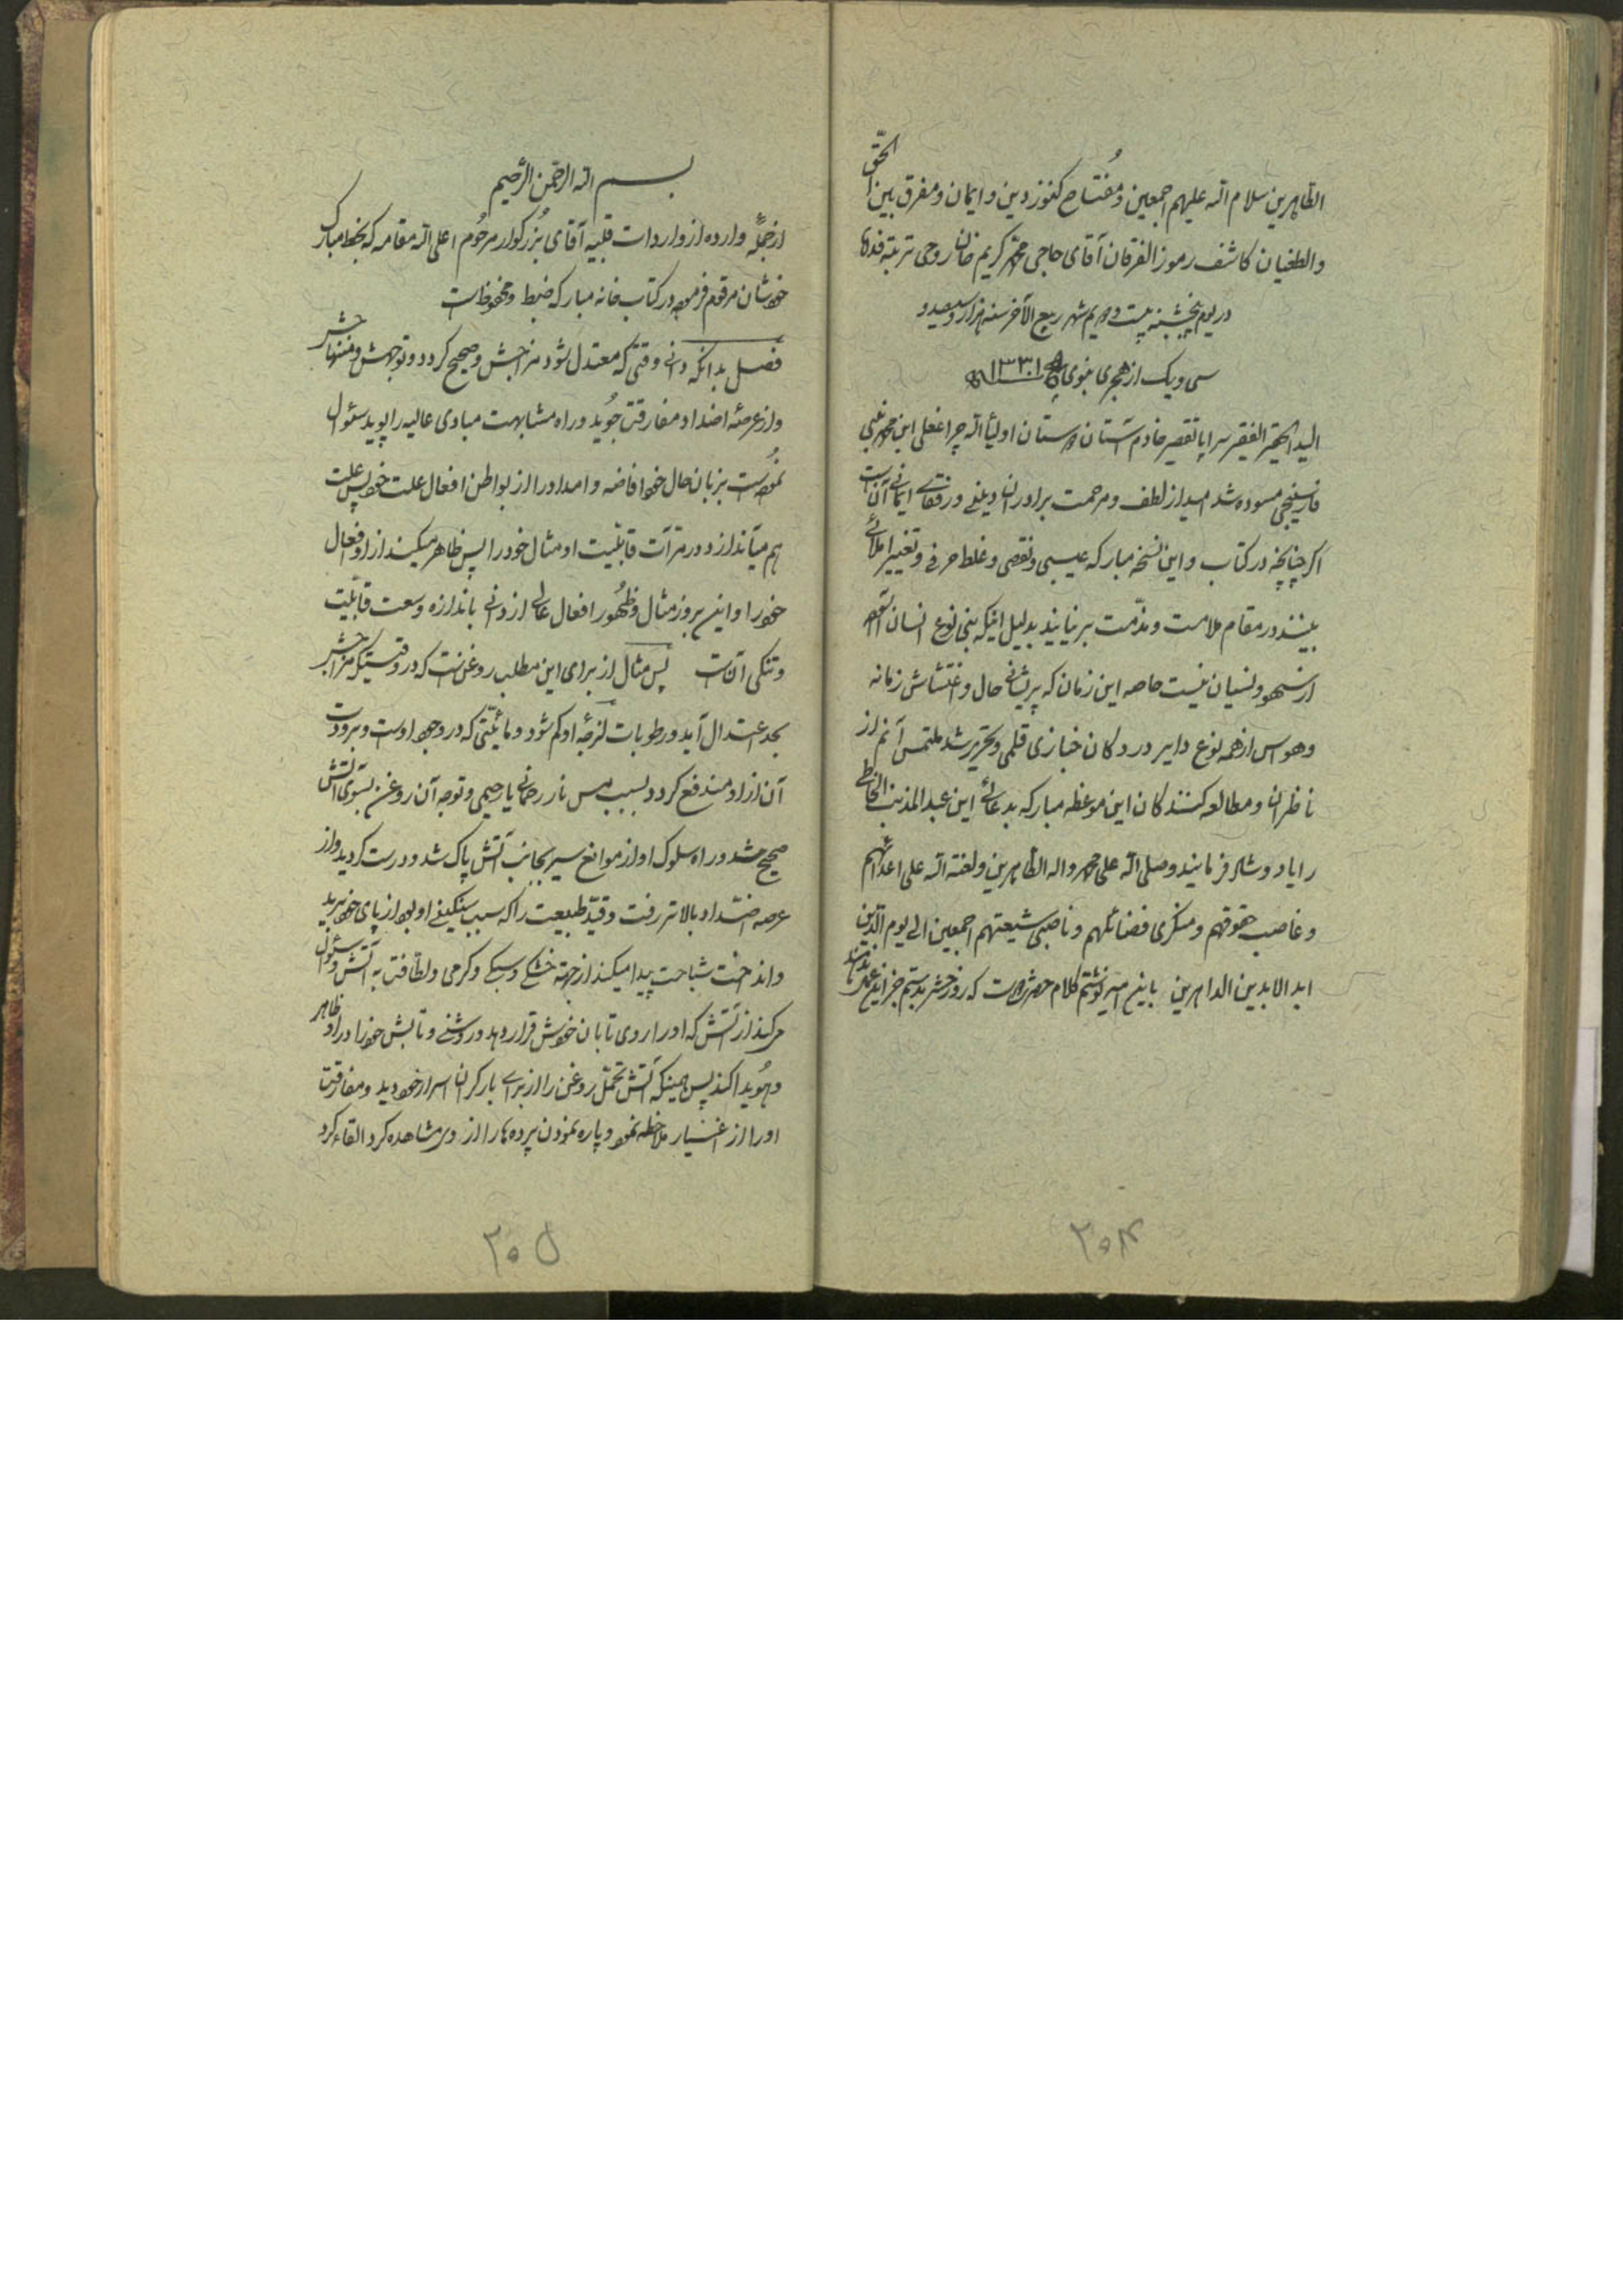 الطاهرین سلام الله علیهم اجمعین و مُفتاح کنوز دین و ایمان و مفرق بین الحق
والطغیان کاشف رموز الفرقان آقای حاجی محمد کریم خان روحی تربته فداه
در یوم پنجشنبه بیست و دویم شهر ربیع الآخر سنه هزار و سیصد و
سی و یک از هجری نبوی ۱۳۳۱
الید الحقیر الفقیر سراپا تقصیر خادم آستان دوستان اولیأ الله چراغعلی ابن محمد نبی
مسوده شد امید از لطف و مرحمت برادران دینی و رفقای ایمانی آن است
اگر چنانچه در کتاب و این نسخه مبارکه عیبی و نقصی و غلط حرفی و تغییر املائی
ببینند در مقام ملامت و مذّمت بر نیایند بدلیل اینکه بنی نوع انسان
از سهو و نسیان نیست خاصه این زمان که پریشانی حال و اغتشاش زمانه
و هوس از همه نوع دایر در دکان خبازی قلمی و تحریر شد ملتمس آنم از
ناظران و مطالعه کنندگان این موعظه مبارکه بدعائی این عبد المذنب الخاطی
را یاد و شاد فرمایند و صلی الله علی محمد واله الطاهرین ولعنة الله علی اعدائهم
و غاصب حقوقهم و منکری فضائلهم و ناصبی شیعتهم اجمعین الی یوم الدّین
ابد الابدین الداهرین باین امید نوشتم کلام حضرت دوست که روز حشر بدستم جز این
۲۰۴
بسم الله الرحمن الرّحیم
از جملهٔ وارده از واردات قلبیه آقای بُزرکوار مرحُوم اعلی الله مقامه که بخط مبارک
خودشان مرقوم فرموده در کتاب خانه مبارکه ضبط و محفوظ است
فصل بدانکه دانی وقتی که معتدل شود مزاجش و صحیح کردد و توجهش و منتهاش
و از عرصهٔ اضداد مفارقت جُوید و راه مشابهت مبادی عالیه را پوید سئوال
نمُوده است بزبان حال خود افاضه و امداد را از بواطن افعال علت خود پس علت
هم میآندازد در مرآت قابلیت او مثال خود را پس ظاهر میکند از او افعال
خود را و این بروز مثال و ظهُور افعال عالی از دانی باندازه وسعت قابلیّت
و تنکی آنست پس مثال از برای این مطلب روغن است که در وقتیکه مزاجش
بحد اعتدال آید و رطوبات لزجهٔ او کم شود و مائیّتی که در وجود اوست و برودت
آن از او مندفع کردد بسبب مس نار رحمانی یا رحیمی و توجه آن روغن بسوی آتش
صحیح شد و راه سلوک او از موانع سیر بجانب آتش پاک شد و درست کردید و از
عرصه اضداد بالاتر رفت و قید طبیعت را که سبب سنکینی او بود از پای خود برید
و انداخت شباهت پیدا میکند از جهة خشکی و سبکی و کرمی و لطافت به آتش و سئوال
میکند از آتش که او را روی تابان خویش قرار دهد و روشنی و تابش خود را در او ظاهر
و هُویدا کند پس همینکه آتش تحمّل روغن را از برای بار کران اسرار خود دید و مفارقت
او را از اغیار ملاحظه نمود و پاره نمودن پرده ها را از وی مشاهده کرد القاء کرد
۲۰۵